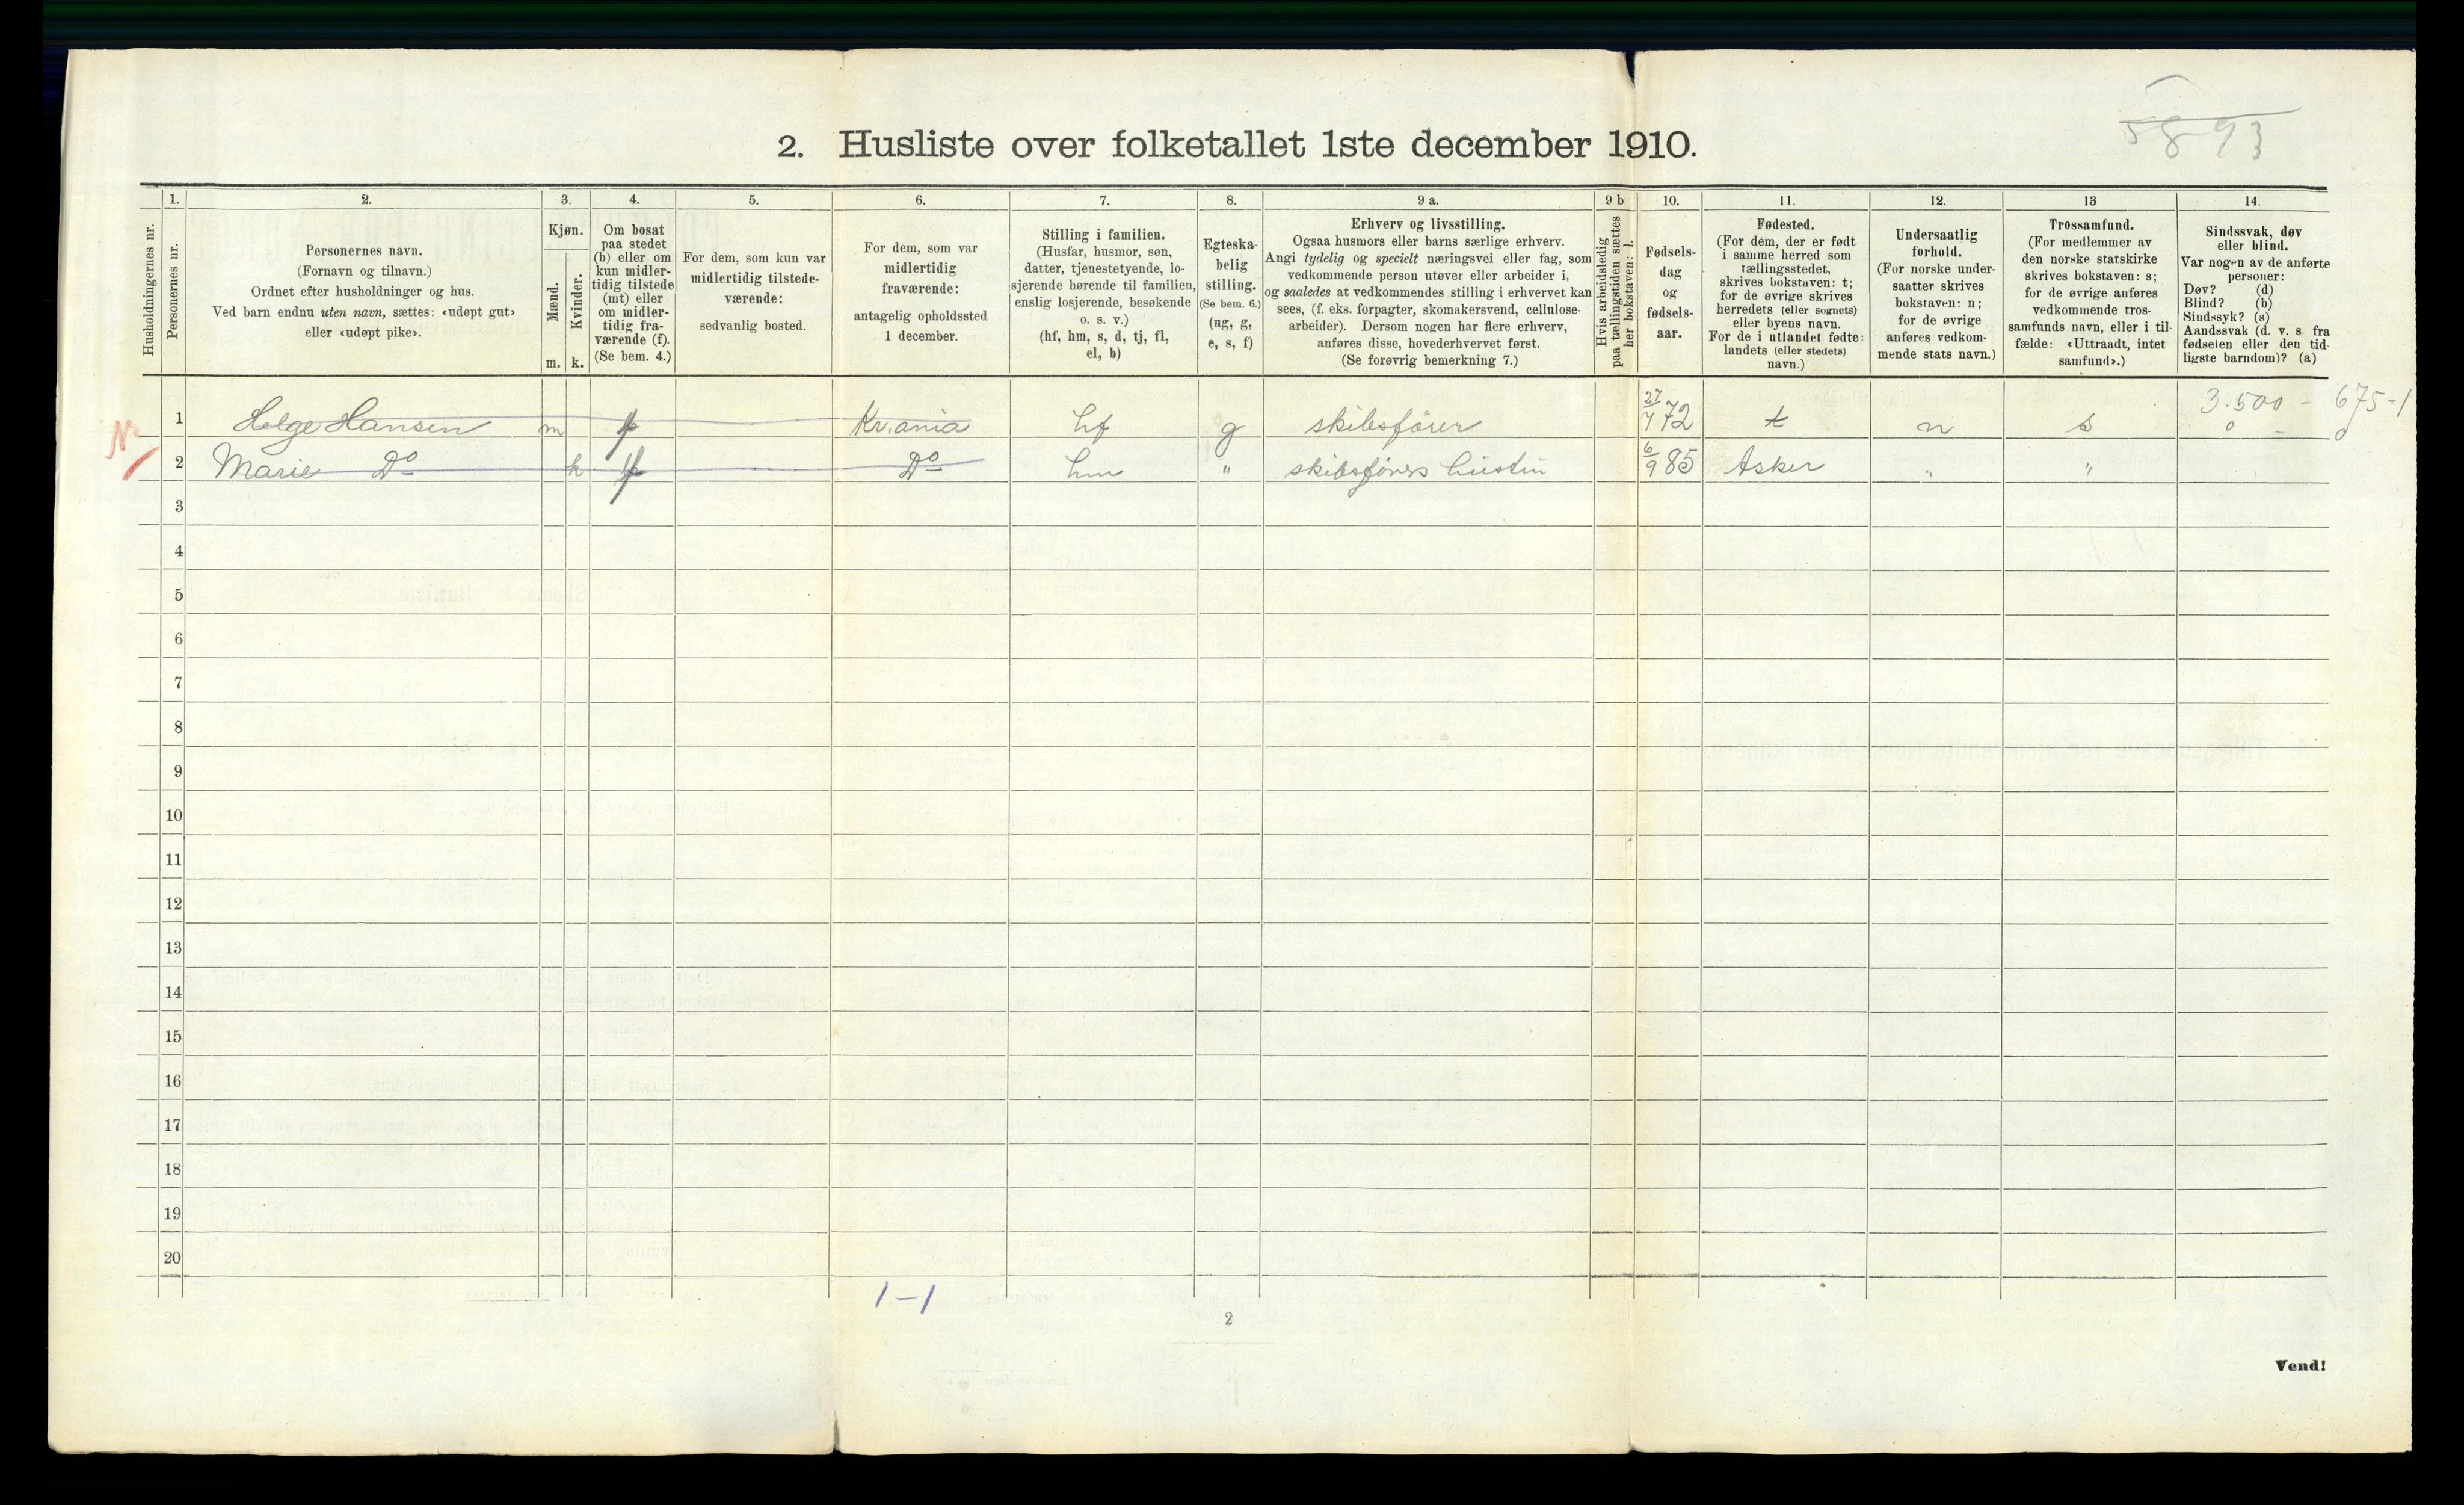 5893
2. Husliste over folketallet 1ste december 1910.
Husholdningernes nr.
1.
Personernes nr.
2.
Personernes navn.
(Fornavn og tilnavn.)
Ordnet efter husholdninger og hus.
Ved barn endnu uten navn, sættes: «udøpt gut»
eller «udøpt pike».
3.
Kjøn.
Mænd.
Kvinder.
m. k.
4.
Om bosat
paa stedet
(b) eller om
kun midler-
tidig tilstede
(mt) eller
om midler-
tidig fra-
værende (f).
(Se bem. 4.)
5.
For dem, som kun var
midlertidig tilstede-
værende:
sedvanlig bosted.
6.
For dem, som var
midlertidig
fraværende:
antagelig opholdssted
1 december.
7.
Stilling i familien.
(Husfar, husmor, søn,
datter, tjenestetyende, lo-
sjerende hørende til familien,
enslig losjerende, besøkende
o. s. v.)
(hf, hm, s, d, tj, fl,
el, b)
8.
Egteska-
belig
stilling.
(Se bem. 6.)
(ug, g,
e, s, f)
9 a.
Erhverv og livsstilling.
Ogsaa husmors eller barns særlige erhverv.
Angi tydelig og specielt næringsvei eller fag, som
vedkommende person utøver eller arbeider i,
og saaledes at vedkommendes stilling i erhvervet kan
sees, (f. eks. forpagter, skomakersvend, cellulose-
arbeider). Dersom nogen har flere erhverv,
anføres disse, hovederhvervet først.
(Se forøvrig bemerkning 7.)
9 b
Hvis arbeidsledig
paa tællingstiden sættes
her bokstaven: l.
10.
Fødsels-
dag
og
fødsels-
aar.
11.
Fødested.
(For dem, der er født
i samme herred som
tællingsstedet,
skrives bokstaven: t;
for de øvrige skrives
herredets (eller sognets)
eller byens navn.
For de i utlandet fødte:
landets (eller stedets)
navn.)
12.
Undersaatlig
forhold.
(For norske under-
saatter skrives
bokstaven: n;
for de øvrige
anføres vedkom-
mende stats navn.)
13
Trossamfund.
(For medlemmer av
den norske statskirke
skrives bokstaven: s;
for de øvrige anføres
vedkommende tros-
samfunds navn, eller i til-
fælde: «Uttraadt, intet
samfund».)
14.
Sindssvak, døv
eller blind.
Var nogen av de anførte
personer:
Døv? (d)
Blind? (b)
Sindssyk? (s)
Aandssvak (d. v. s. fra
fødselen eller den tid-
ligste barndom)? (a)
1 Helge Hansen m f Kr.ania hf g skibsfører 27/7 72 t n s 3.500 - 675-1
2 Marie Do k f Do hm " skibsførers hustru 6/9 85 Asker " " 0 - 0
3
4
5
6
7
8
9
10
11
12
13
14
15
16
17
18
19
20
1-1
2
Vend!